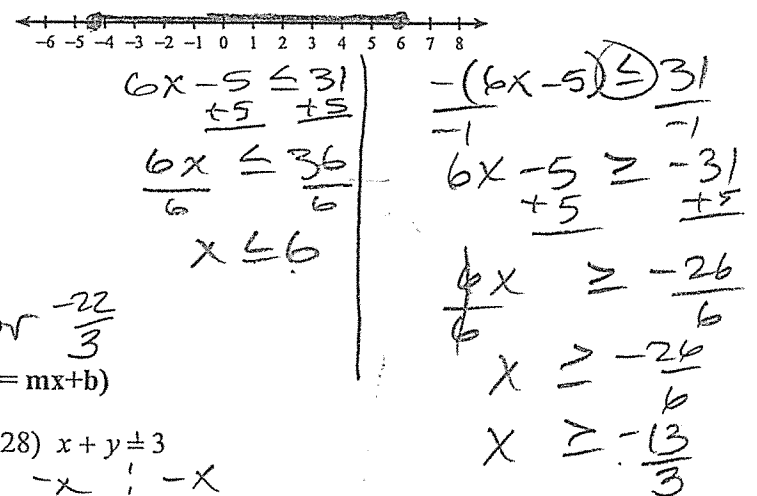 -6 -5 -4 -3 -2 -1 0 1 2 3 4 5 6 7 8
6x - 5 ≤ 31
+5 +5
6x ≤ 36
6 6
x ≤ 6
-(6x - 5) ≤ 31
-1 -1
6x - 5 ≥ -31
+5 +5
6x ≥ -26
6 6
x ≥ -26
6
x ≥ -13
3
or -22
3
= mx+b)
28) x + y = 3
-x -x